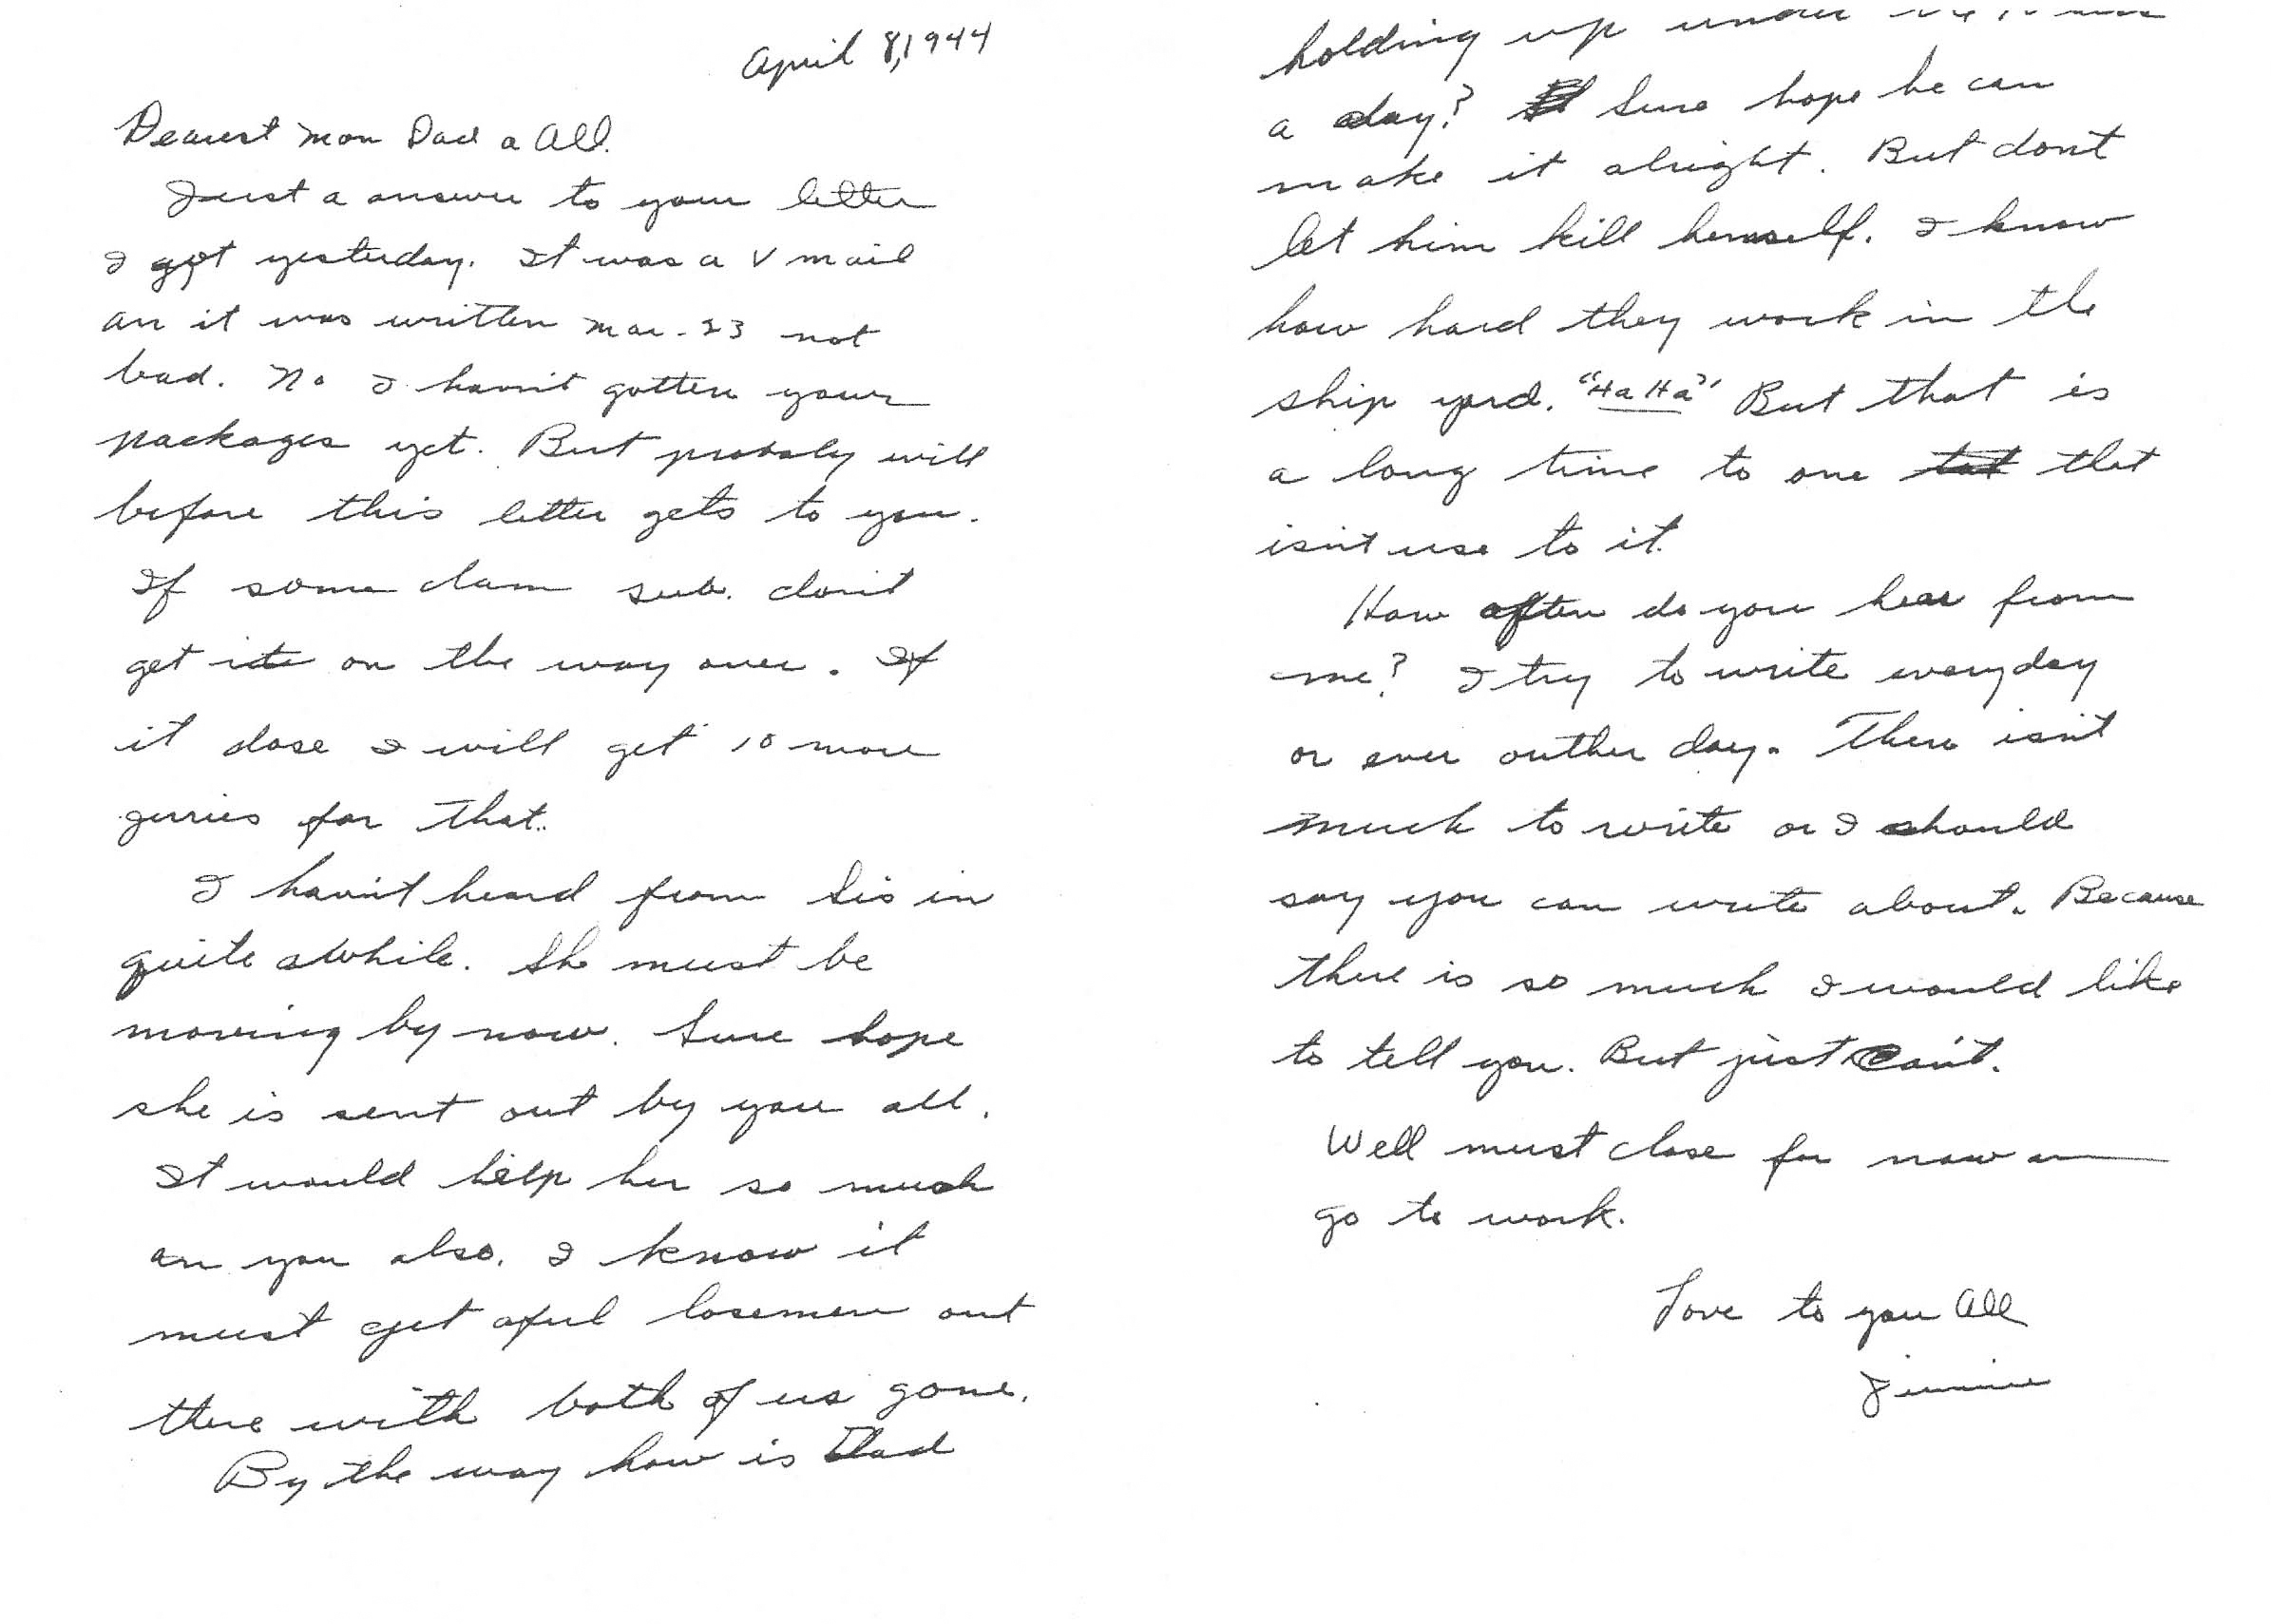 April 8, 1944
Dearest Mon Dad a All.
Just a answer to your letter
I got yesterday. It was a V mail
an it was written Mar. 23 not
bad. No I havn't gotten your
packages yet. But probaly will
before this letter gets to you.
If some dam sub. don't
get it on the way over. If
it dose I will get 10 more
jerries for that.
I havn't heard from Sis in
quite awhile. She must be
moving by now. Sure hope
she is sent out by you all.
It would help her so much
an you also. I know it
must get aful losemen out
there with both of us gone.
By the way how is Dad
holding up under
a day? Sure hope he can
make it alright. But don't
let him kill hemself. I know
how hard they work in the
ship yard. "Ha Ha" But that is
a long time to one that
isn't use to it.
How often do you hear from
me? I try to write everyday
or ever outher day. There isn't
much to write or I should
say you can write about. Because
there is so much I would like
to tell you. But just can't.
Well must close for now an
go to work.
Love to you All
Jimmie